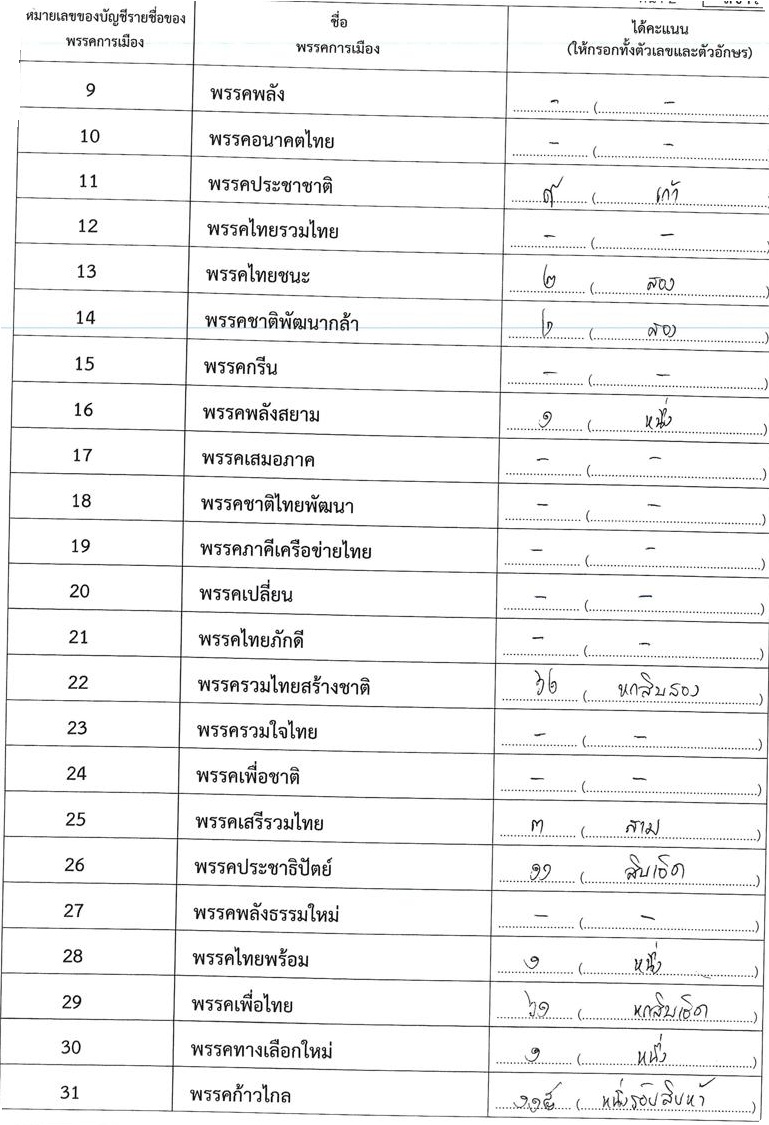 หมายเลขของบัญชีรายชื่อของ ชื่อ ได้คะแนน
พรรคการเมือง พรรคการเมือง (ให้กรอกทั้งตัวเลขและตัวอักษร)
9 พรรคพลัง - ( -
10 พรรคอนาคตไทย - ( -
11 พรรคประชาชาติ ๙ ( เก้า
12 พรรคไทยรวมไทย - ( - )
13 พรรคไทยชนะ ๒ ( สอง )
14 พรรคชาติพัฒนากล้า ๒ ( สอง )
15 พรรคกรีน - ( - )
16 พรรคพลังสยาม ๑ ( หนึ่ง )
17 พรรคเสมอภาค - ( - )
18 พรรคชาติไทยพัฒนา - ( - )
19 พรรคภาคีเครือข่ายไทย - ( - )
20 พรรคเปลี่ยน - ( - )
21 พรรคไทยภักดี - ( - )
22 พรรครวมไทยสร้างชาติ ๖๒ ( หกสิบสอง )
23 พรรครวมใจไทย - ( - )
24 พรรคเพื่อชาติ - ( - )
25 พรรคเสรีรวมไทย ๓ ( สาม )
26 พรรคประชาธิปัตย์ ๑๑ ( สิบเอ็ด )
27 พรรคพลังธรรมใหม่ - ( - )
28 พรรคไทยพร้อม ๑ ( หนึ่ง )
29 พรรคเพื่อไทย ๖๑ ( หกสิบเอ็ด )
30 พรรคทางเลือกใหม่ ๑ ( หนึ่ง )
31 พรรคก้าวไกล ๑๑๕ ( หนึ่งร้อยสิบห้า )